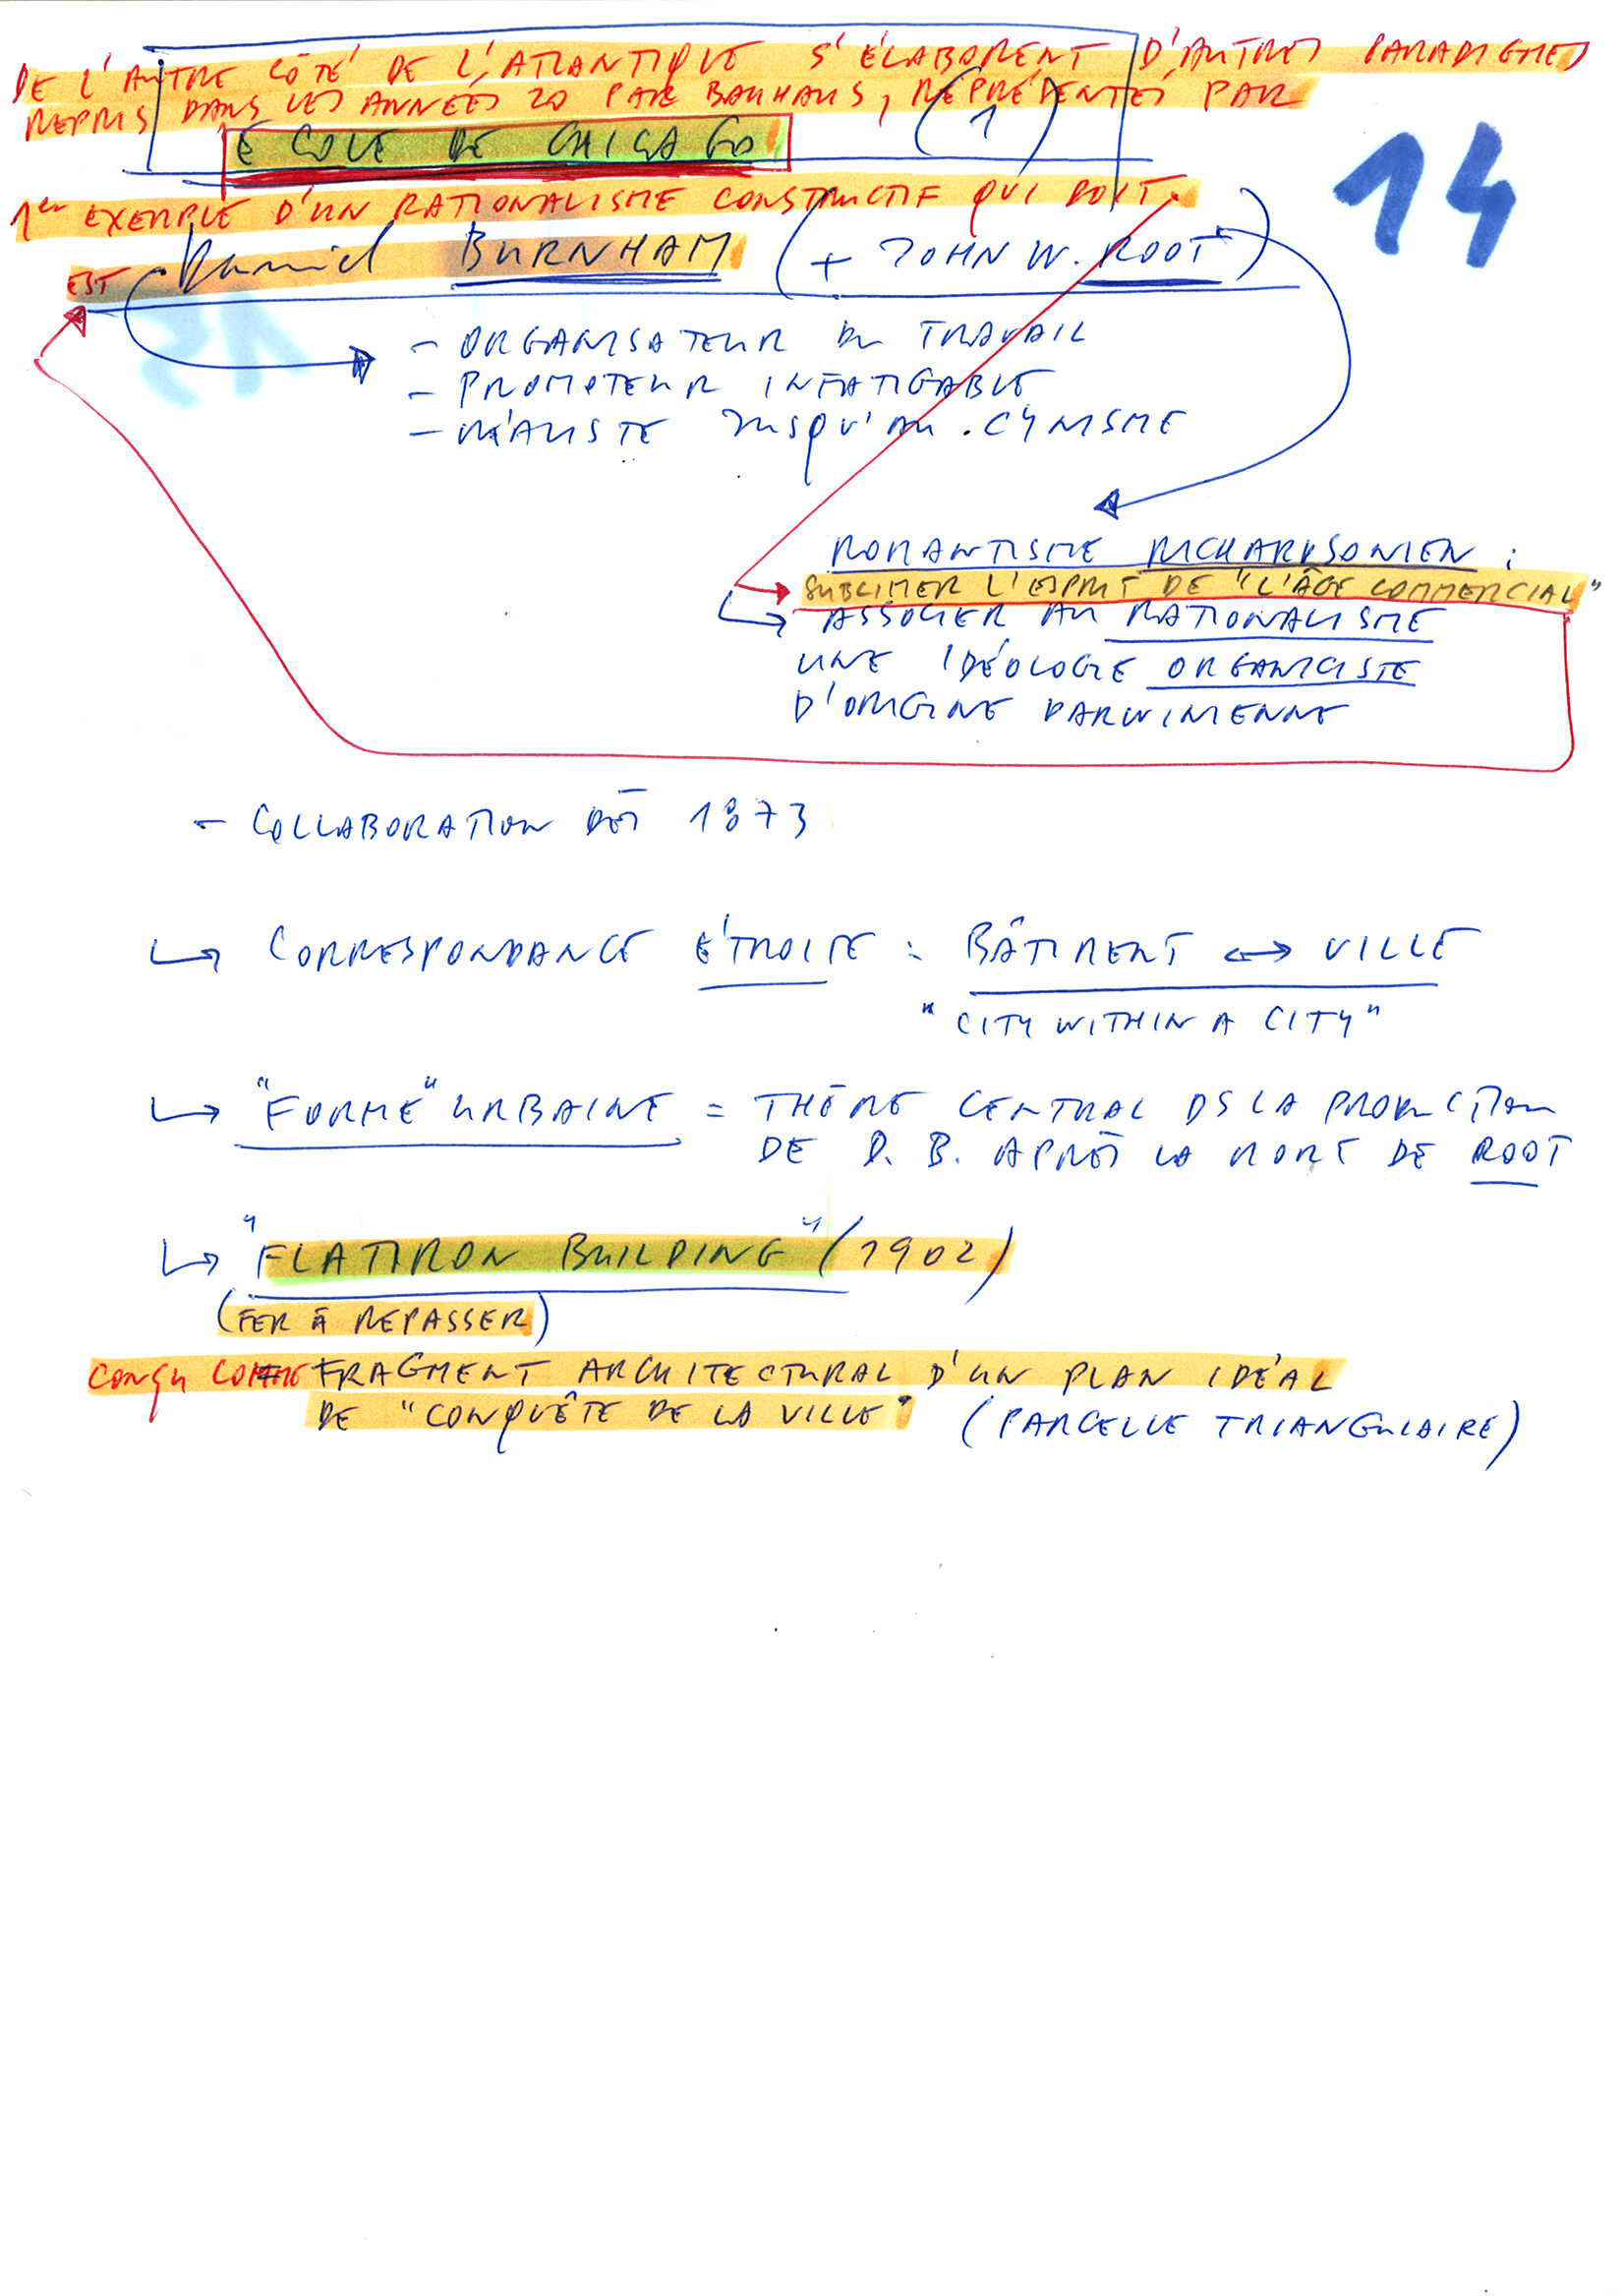 DE L'AUTRE CÔTÉ DE L'ATLANTIQUE S'ÉLABORENT D'AUTRES PARADIGMES
REPRIS DANS LES ANNÉES 20 PAR BAUHAUS, REPRÉSENTÉS PAR
ECOLE DE CHICAGO (1)
14
1er EXEMPLE D'UN RATIONALISME CONSTRUCTIF QUI DOIT
EST Daniel BURNHAM (+ JOHN W. ROOT)
- ORGANISATEUR DU TRAVAIL
- PROMOTEUR INFATIGABLE
- RÉALISTE JUSQU'AU CYNISME
ROMANTISME RICHARDSONIEN :
SUBLIMER L'ESPRIT DE "L'ÂGE COMMERCIAL"
ASSOCIER AU RATIONALISME
UNE IDÉOLOGIE ORGANICISTE
D'ORIGINE DARWINIENNE
- COLLABORATION DÈS 1873
↳ CORRESPONDANCE ÉTROITE : BÂTIMENT ↔ VILLE
"CITY WITHIN A CITY"
↳ "FORME" URBAINE = THÈME CENTRAL DS LA PRODUCTION
DE D. B. APRÈS LA MORT DE ROOT
↳ "FLATIRON BUILDING" (1902)
(FER À REPASSER)
CONÇU COMME FRAGMENT ARCHITECTURAL D'UN PLAN IDÉAL
DE "CONQUÊTE DE LA VILLE" (PARCELLE TRIANGULAIRE)